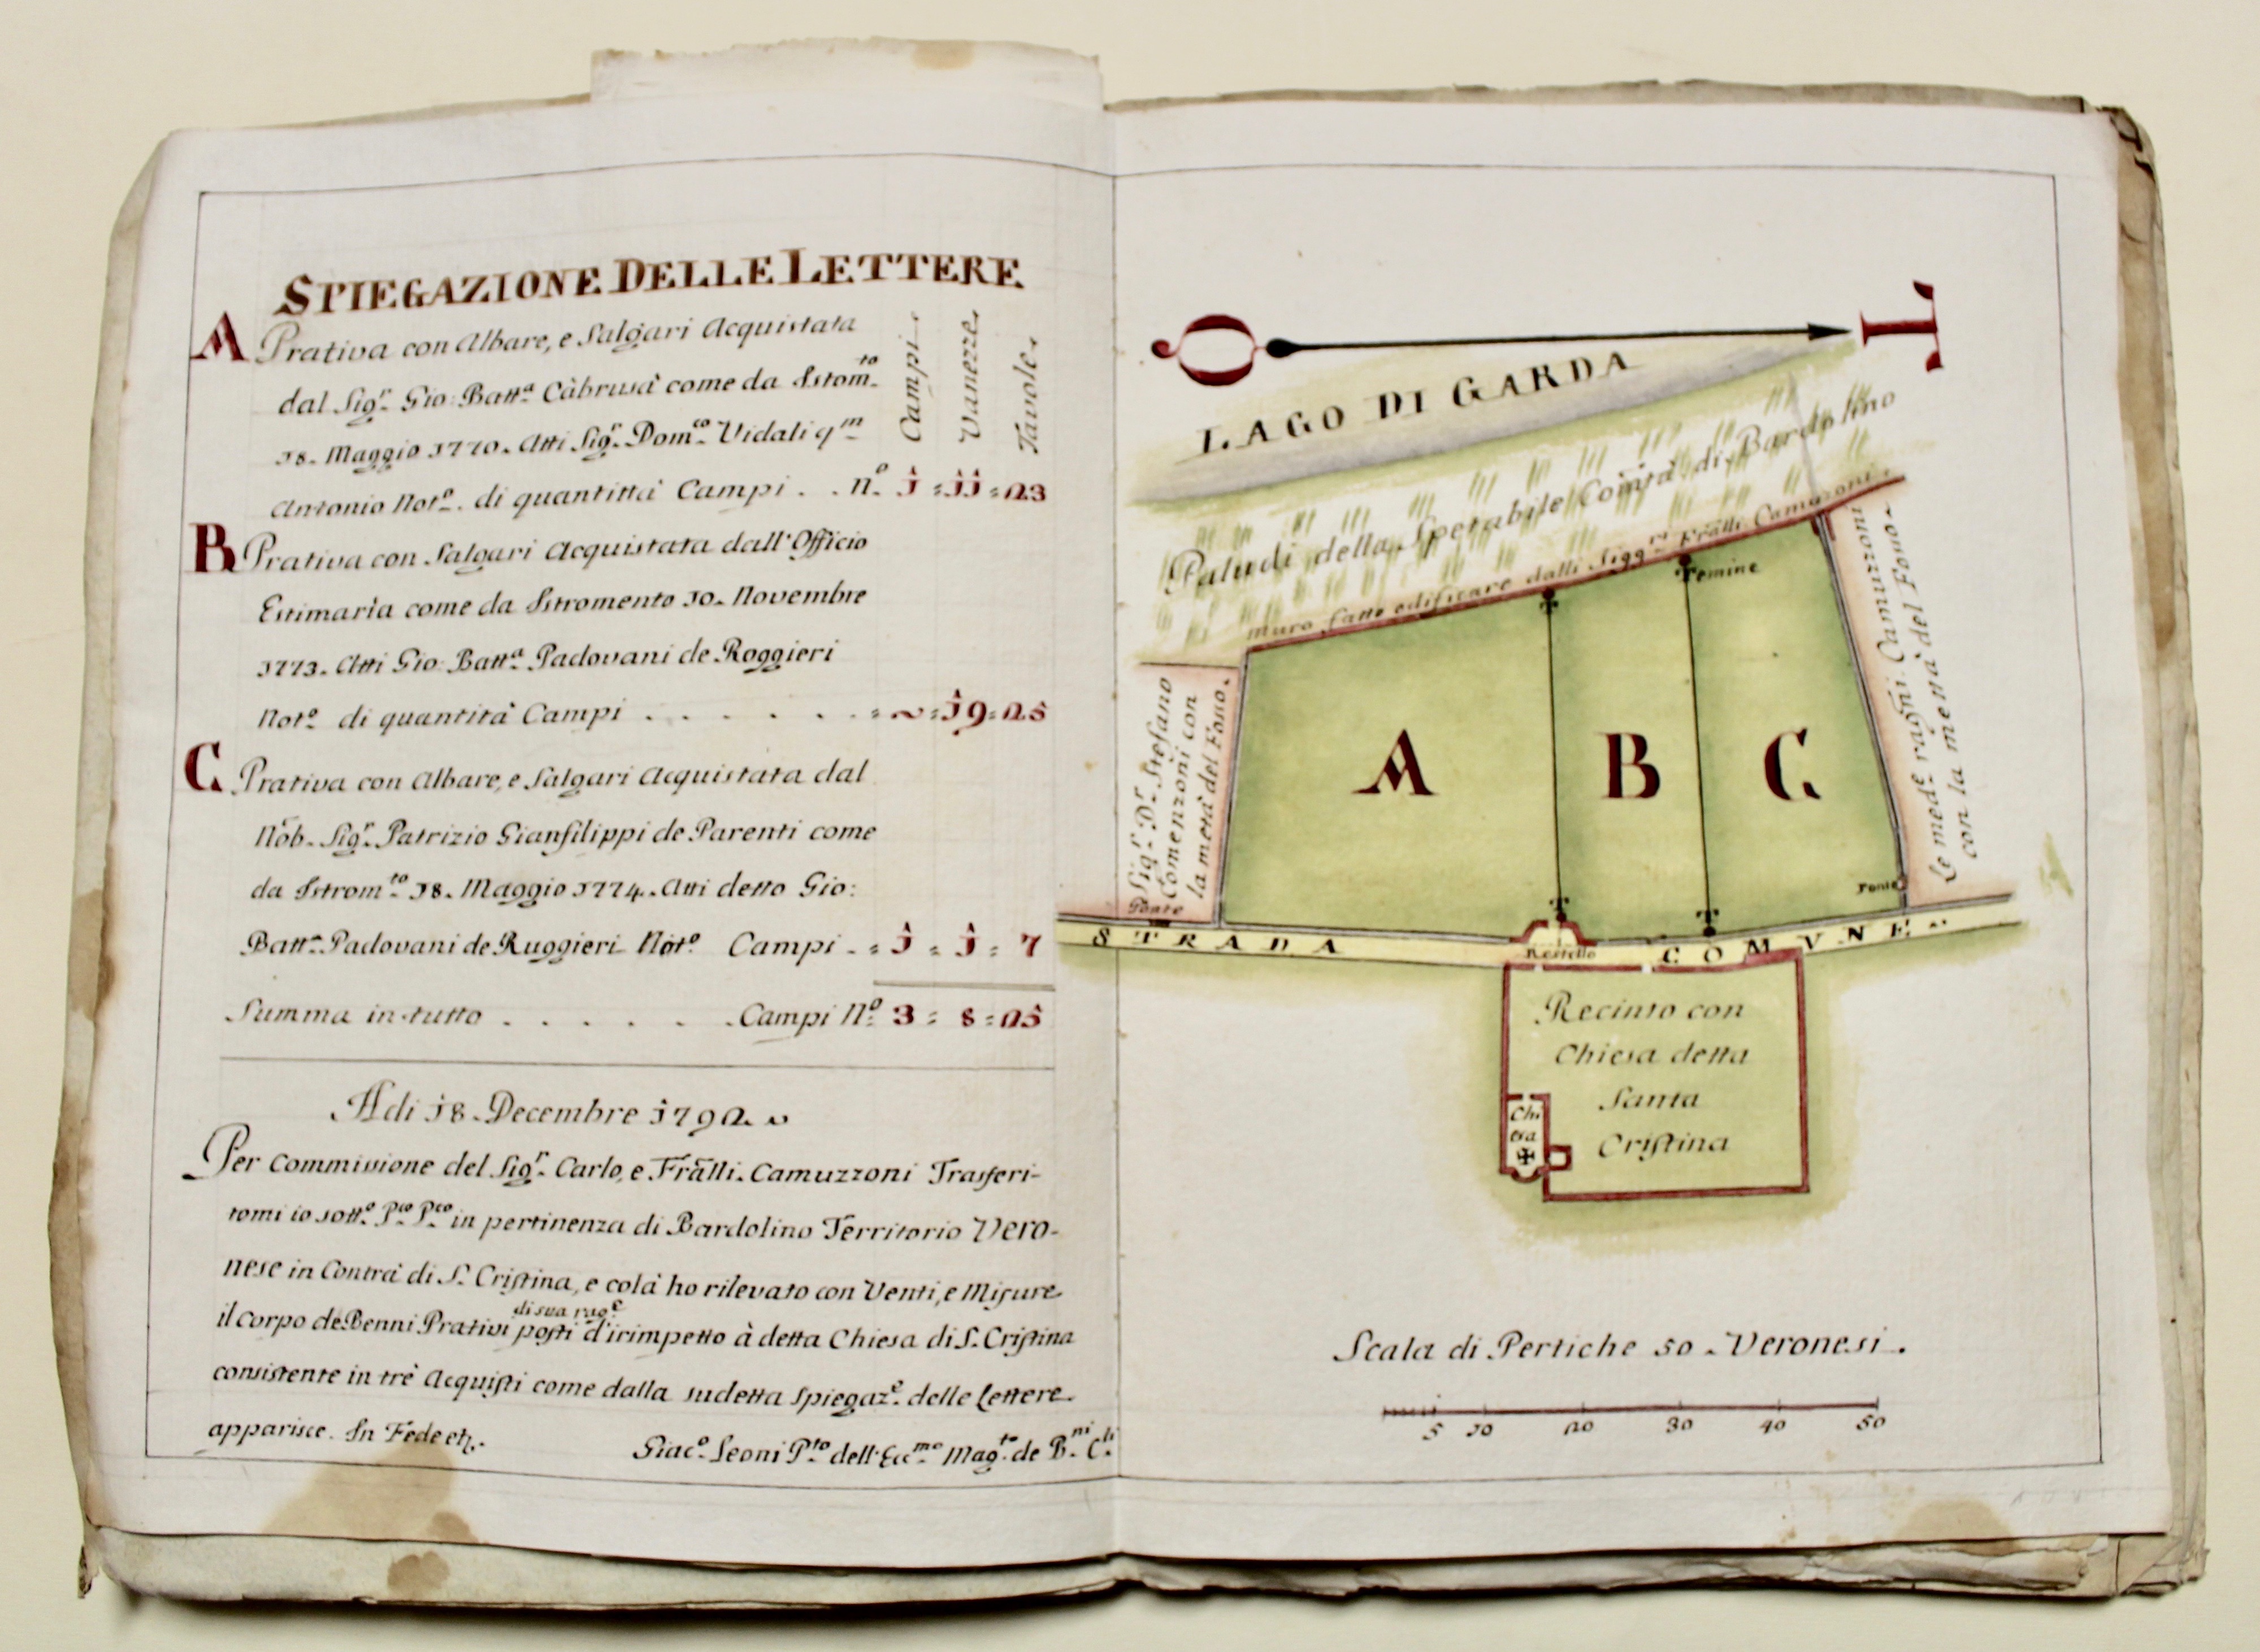 SPIEGAZIONE DELLE LETTERE
Campi.
Vanezze.
Tavole.
A Prativa con Albare, e Salgari Acquistata
dal Sigr. Gio: Batta. Càbrusà come da Istomto.
18. Maggio 1770. Atti Sigr. Domco. Vidali qm
Antonio Noto. di quantittà Campi . . No. 1 = 11 = 23
B Prativa con Salgari Acquistata dall' Officio
Estimaria come da Istromento 10. Novembre
1773. Atti Gio: Batta. Padovani de Roggieri
Noto. di quantità Campi . . . . . . = ~ = 19 = 25
C Prativa con Albare, e Salgari Acquistata dal
Nob. Sigr. Patrizio Gianfilippi de Parenti come
da Istromto. 18. Maggio 1774. Atti detto Gio:
Batta. Padovani de Ruggieri Noto. Campi . = 1 = 1 = 7
Summa in tutto . . . . . . Campi No. 3 = 8 = 25
Adi 18. Decembre 1792.
Per Commissione del Sigr. Carlo, e Fralli. Camuzzoni Trasferi-
tomi io sotto. Pco. Pco. in pertinenza di Bardolino Territorio Vero-
nese in Contrà di S. Cristina, e colà ho rilevato con Venti, e Misure
di sua rage.
il Corpo de Benni Prativi posti d'irimpetto à detta Chiesa di S. Cristina
consistente in trè Acquisti come dalla sudetta Spiegaze. delle Lettere
apparisce. In Fede etz.
Giaco. Leoni Pto. dell' Eccmo. Magto. de Bni. Cli.
O
T
LAGO DI GARDA
Paludi della Spetabile Comtà di Bardolino
Muro fatto edificare dalli Siggri. Fralli Camozoni.
Temine
Sigr. Dr. Stefano
Comenzoni con
la metà del Fosso.
Ponte
A
B
C
Le mede. ragni. Camuzzoni
con la metà del Fosso
Ponte
STRADA COMVNE
Restello
Recinto con
Chiesa detta
Santa
Cristina
Chi
esa
Scala di Pertiche 50. Veronesi.
5 10 20 30 40 50